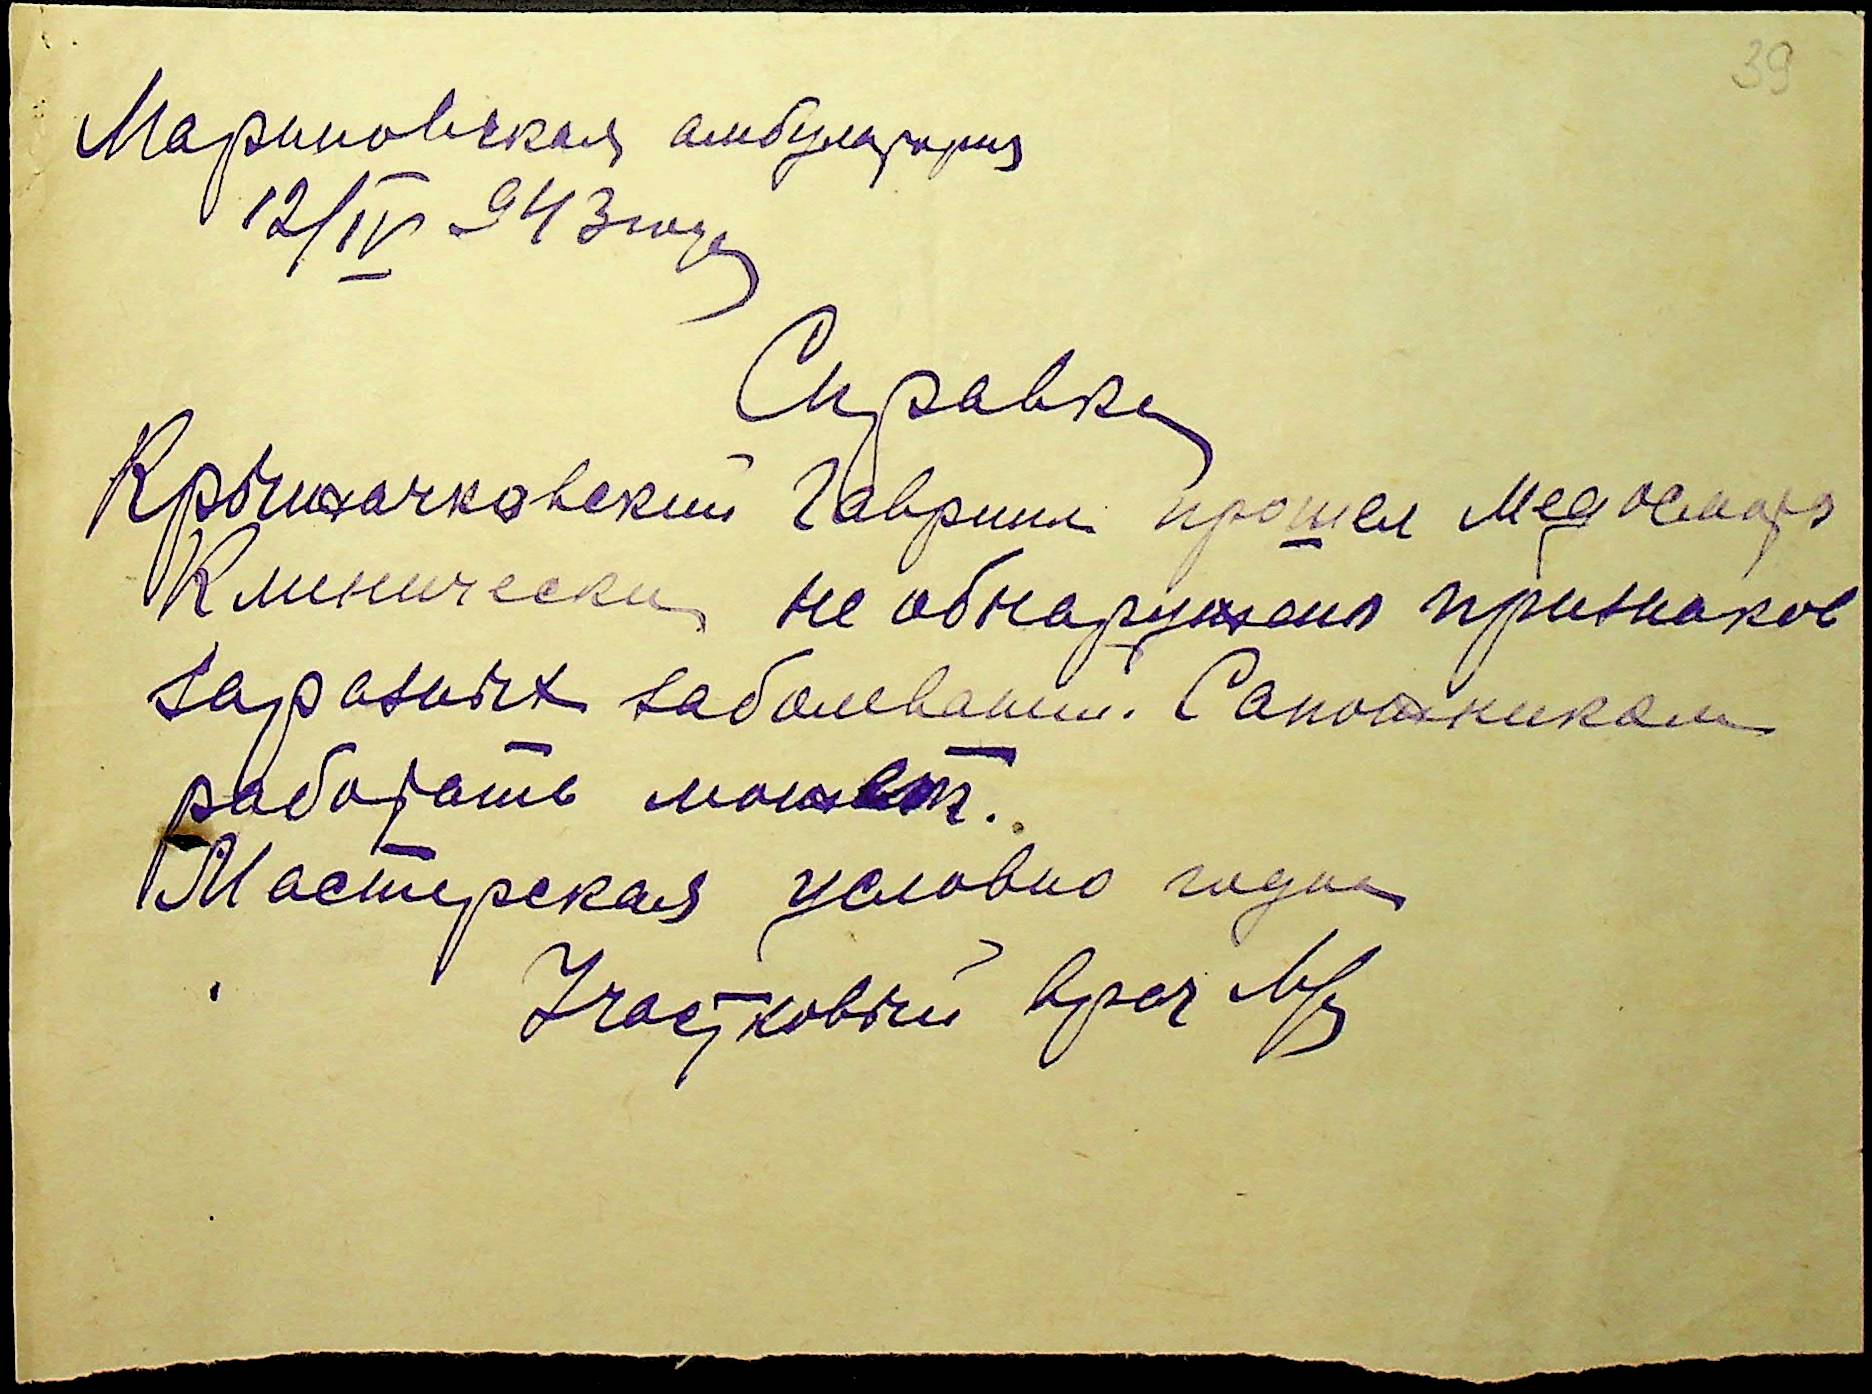 39
Мариновская амбулатория
12/IV 943 года
Справка
Крыжачковский Гавриил прошел медосмотр
Клинически не обнаружено признаков
заразных заболеваний. Сапожником
работать может.
Мастерская условно годна
Участковый врач